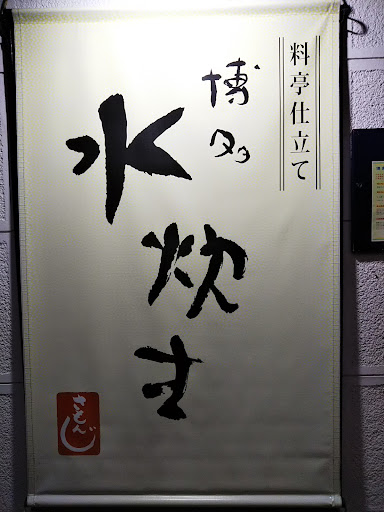 料亭仕立て
博多
水炊き
さもんじ